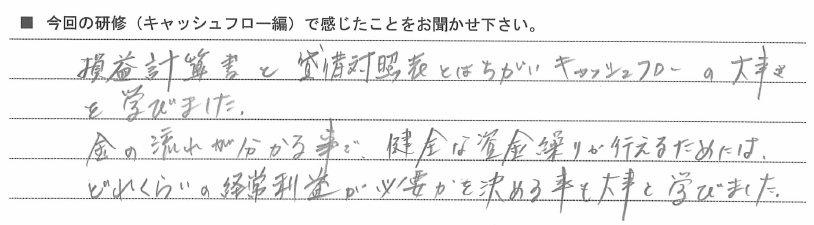 ■ 今回の研修（キャッシュフロー編）で感じたことをお聞かせ下さい。
損益計算書と貸借対照表とはちがいキャッシュフローの大事さ
を学びました。
金の流れが分かる事で、健全な資金繰りが行えるためには、
どれくらいの経常利益が必要かを決める事も大事と学びました。